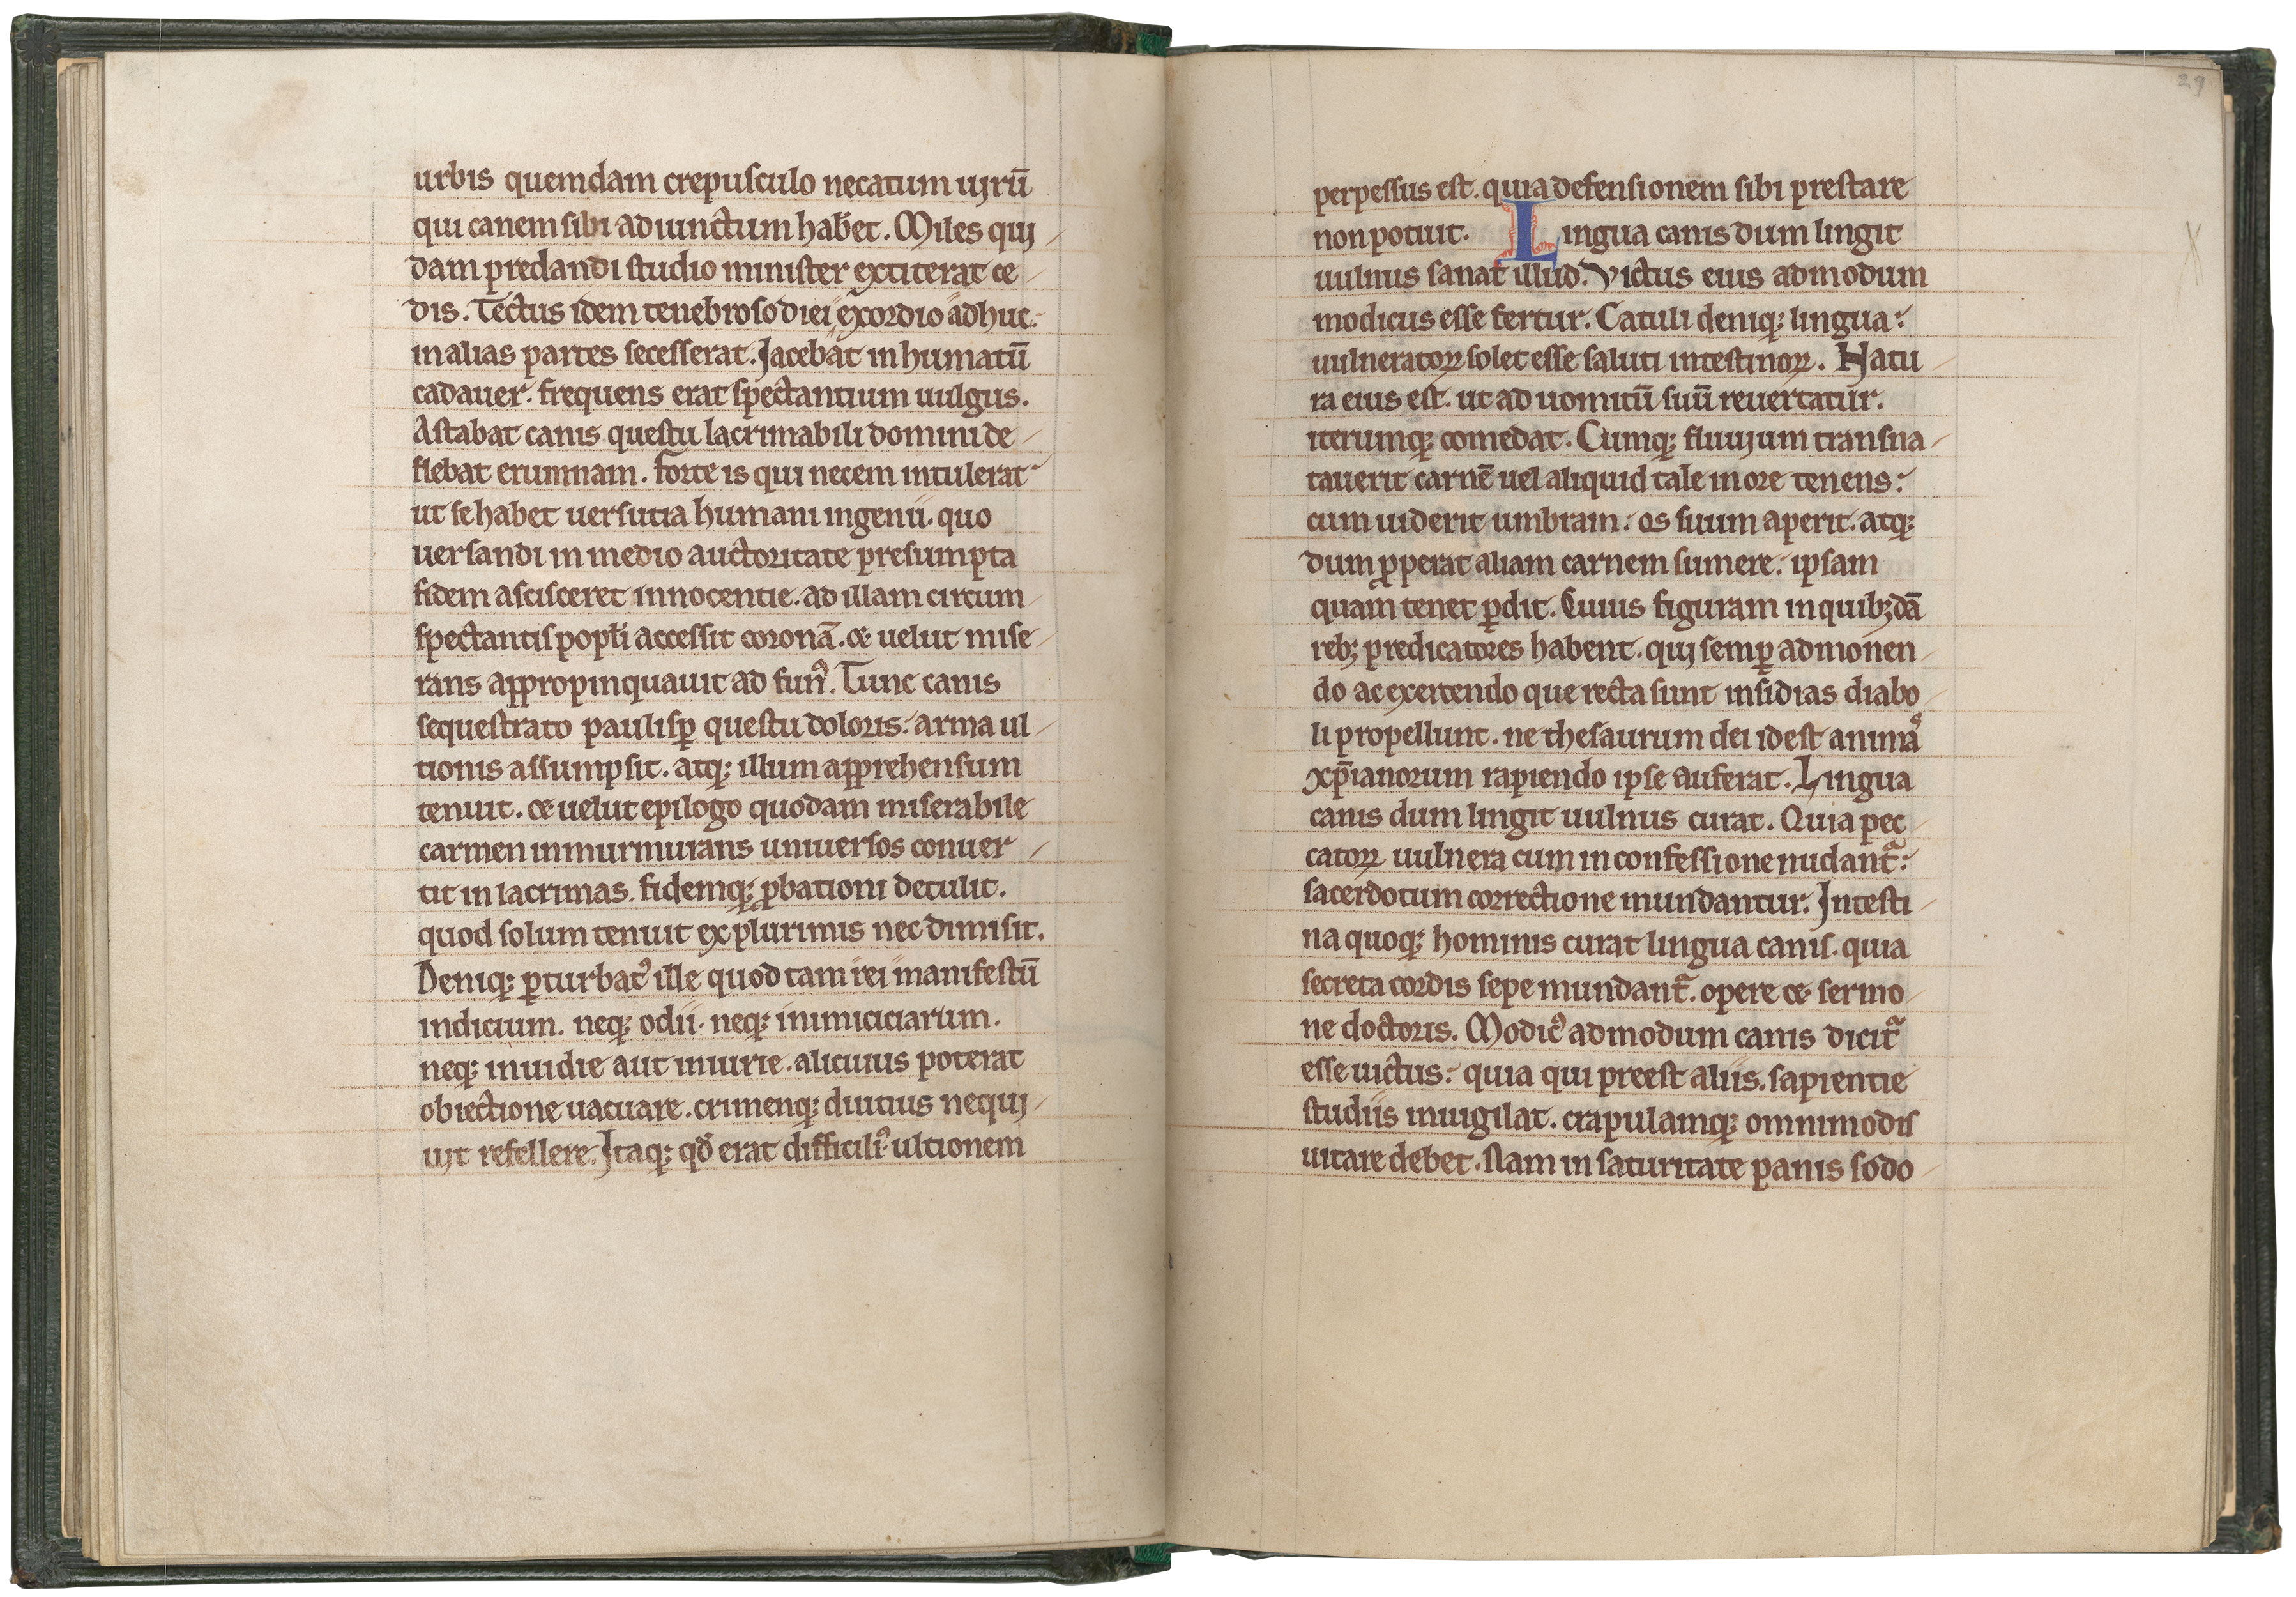 urbis quemdam crepusculo necatum uirū
qui canem sibi adiunctum haƀet. Miles qui
dam predandi studio minister extiterat ce
dis. Tectus idem tenebroso diei exordio adhuc
in alias partes secesserat. Jacebat inhumatū
cadauer. frequens erat spectantium uulgus.
Astabat canis questu lacrimabili domini de
flebat erumnam. Forte is qui necem intulerat
ut se habet uersutia humani ingenii. quo
uersandi in medio auctoritate presumpta
fidem ascisceret innocentie. ad illam circum
spectantis popłi accessit coronā. & uelut mise
rans appropinquauit ad fun᾽. Tunc canis
sequestrato paulisꝑ questu doloris. arma ul
tionis assumpsit. atq; illum apprehensum
tenuit. & uelut epilogo quodam miserabile
carmen inmurmurans uniuersos conuer
tit in lacrimas. fidemq; ꝓbationi detulit.
quod solum tenuit ex plurimis nec dimisit.
Deniq; ꝑturbat᾽ ille quod tam rei manifestū
indicium. neq; odii. neq; inimiciciarum.
neq; inuidie aut iniurie. alicuius poterat
obiectione uacuare. crimenq; diutius nequi
uit refellere. Jtaq; qđ erat difficili᾽ ultionem
29
perpessus est. quia defensionem sibi prestare
non potuit. Lingua canis dum lingit
uulnus sanat illud. Victus eius admodum
modicus esse fertur. Catuli deniq; lingua
uulneratoꝝ solet esse saluti intestinoꝝ. Natu
ra eius est. ut ad uomitū suū reuertatur.
iterumq; comedat. Cumq; fluuium transna
tauerit carnē uel aliquid tale in ore tenens
cum uiderit umbram. os suum aperit. atq;
dum ꝓperat aliam carnem sumere. ipsam
quam tenet ꝑdit. Cuius figuram in quibꝫdā
rebꝫ predicatores habent. qui semꝑ admonen
do ac exercendo que recta sunt insidias diabo
li propellunt. ne thesaurum dei id est animaˢ
xp̄ianorum rapiendo ipse auferat. Lingua
canis dum lingit uulnus curat. Quia pec
catoꝝ uulnera cum in confessione nudant᷑
sacerdotum correctione mundantur. Jntesti
na quoq; hominis curat lingua canis. quia
secreta cordis sepe mundant᷑. opere & sermo
ne doctoris. Modic᾽ admodum canis dicit᷑
esse uictus. quia qui preest aliis. sapientie
studiis inuigilat. crapulamq; omnimodis
uitare debet. Nam in saturitate panis sodo